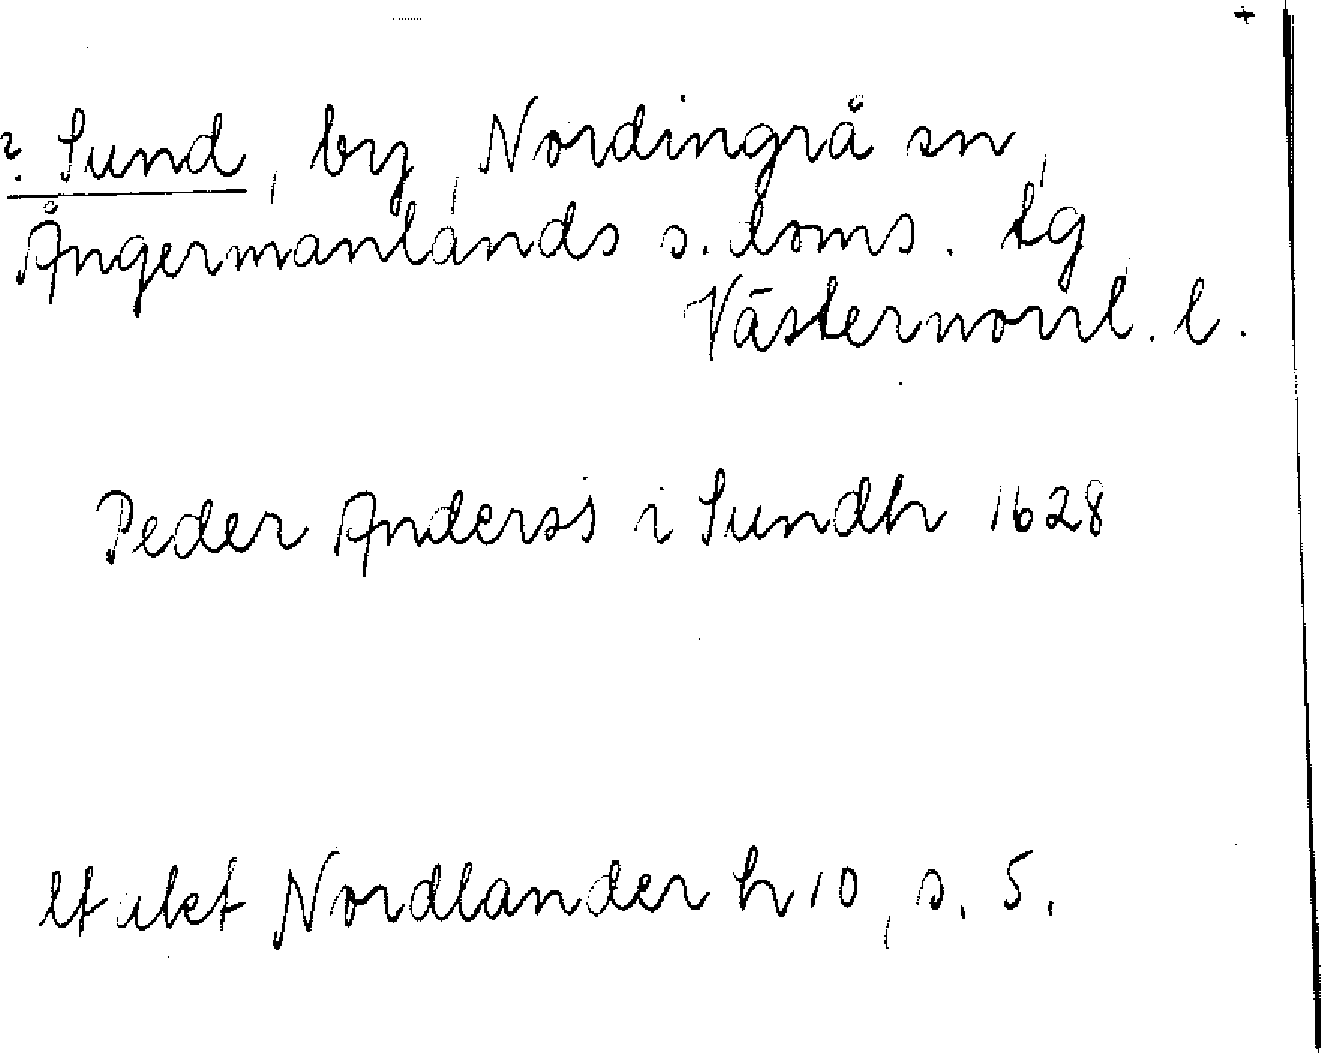 ?. Sund, by, Nordingrå sn,
Ångermanlands s. doms. tg
Västernorrl. l.
Peder Anderss i Sundh 1628
Nordlander h 10, s. 5.